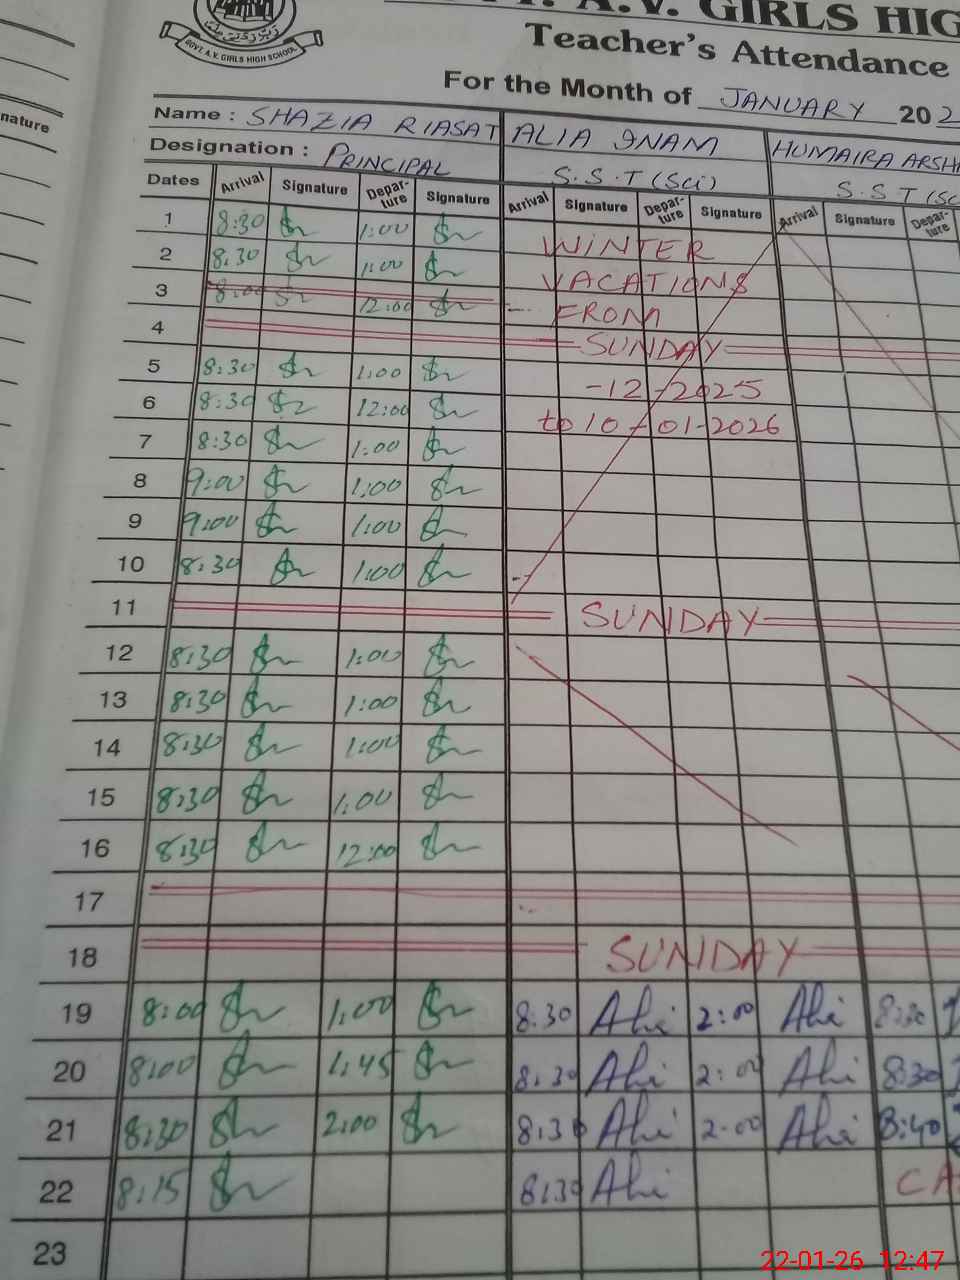 GOVT. A.V. GIRLS HIGH SCHOOL
A.V. GIRLS HIG
Teacher's Attendance
For the Month of JANUARY 202
nature
Name : SHAZIA RIASAT ALIA INAM HUMAIRA ARSHA
Designation : PRINCIPAL S.S.T (Sci) S.S.T (SC
Dates Arrival Signature Depar-ture Signature Arrival Signature Depar-ture Signature Arrival Signature Depar-ture
1 8:30 1:00 WINTER
2 8:30 1:00 VACATIONS
3 8:00 12:00 FROM
4 SUNDAY
5 8:30 1:00 -12-2025
6 8:30 12:00 to 10-01-2026
7 8:30 1:00
8 9:00 1:00
9 9:00 1:00
10 8:30 1:00
11 SUNDAY
12 8:30 1:00
13 8:30 1:00
14 8:30 1:00
15 8:30 1:00
16 8:30 12:00
17
18 SUNDAY
19 8:00 1:00 8:30 2:00 8:30
20 8:00 1:45 8:30 2:00 8:30
21 8:30 2:00 8:30 2:00 8:40
22 8:15 8:30 CA
23
22-01-26 12:47